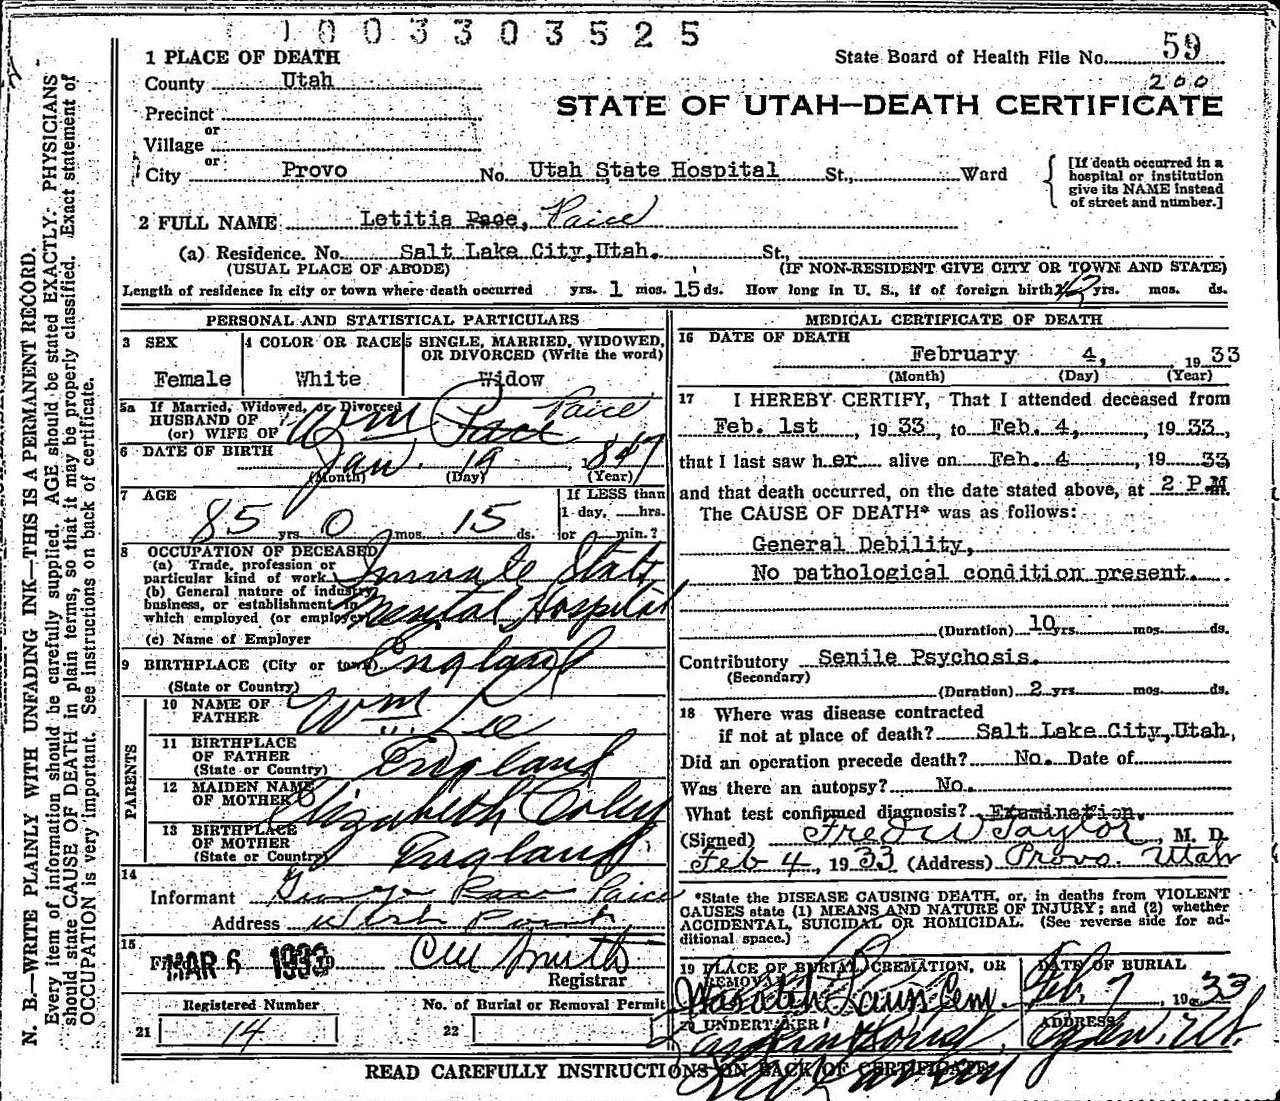 1003303525
1 PLACE OF DEATH
State Board of Health File No. 59
County Utah
200
STATE OF UTAH—DEATH CERTIFICATE
Precinct
or
Village
or
City Provo No. Utah State Hospital St., Ward
[If death occurred in a hospital or institution give its NAME instead of street and number.]
2 FULL NAME Letitia Pace, Paice
(a) Residence. No. Salt Lake City, Utah. St.,
(USUAL PLACE OF ABODE) (IF NON-RESIDENT GIVE CITY OR TOWN AND STATE)
Length of residence in city or town where death occurred yrs. 1 mos. 15 ds. How long in U. S., if of foreign birth? yrs. mos. ds.
PERSONAL AND STATISTICAL PARTICULARS
3 SEX 4 COLOR OR RACE 5 SINGLE, MARRIED, WIDOWED, OR DIVORCED (Write the word)
Female White Widow
5a If Married, Widowed, or Divorced
HUSBAND OF
(or) WIFE OF Wm Pace Paice
6 DATE OF BIRTH
Jan. 19, 1847
(Month) (Day) (Year)
7 AGE
If LESS than
1 day, hrs.
or min.?
85 yrs 0 mos. 15 ds.
8 OCCUPATION OF DECEASED
(a) Trade, profession or
particular kind of work. Inmate State
(b) General nature of industry,
business, or establishment in
which employed (or employer) Mental Hospital
(c) Name of Employer
9 BIRTHPLACE (City or town) England
(State or Country)
PARENTS
10 NAME OF
FATHER Wm Lee
11 BIRTHPLACE
OF FATHER
(State or Country) England
12 MAIDEN NAME
OF MOTHER Elizabeth
13 BIRTHPLACE
OF MOTHER
(State or Country) England
14
Informant George Pace Paice
Address West Point
15
Filed MAR 6 1933 19
Smith
Registrar
Registered Number No. of Burial or Removal Permit
21 14 22
MEDICAL CERTIFICATE OF DEATH
16 DATE OF DEATH
February 4, 1933
(Month) (Day) (Year)
17 I HEREBY CERTIFY, That I attended deceased from
Feb. 1st, 1933, to Feb. 4, 1933,
that I last saw her alive on Feb. 4, 1933,
and that death occurred, on the date stated above, at 2 P.M
The CAUSE OF DEATH* was as follows:
General Debility,
No pathological condition present.
(Duration) 10 yrs. mos. ds.
Contributory Senile Psychosis.
(Secondary)
(Duration) 2 yrs. mos. ds.
18 Where was disease contracted
if not at place of death? Salt Lake City, Utah,
Did an operation precede death? No. Date of
Was there an autopsy? No.
What test confirmed diagnosis? Examination.
(Signed) Fred W Taylor, M. D.
Feb 4, 1933 (Address) Provo. Utah
*State the DISEASE CAUSING DEATH, or, in deaths from VIOLENT
CAUSES state (1) MEANS AND NATURE OF INJURY; and (2) whether
ACCIDENTAL, SUICIDAL OR HOMICIDAL. (See reverse side for ad-
ditional space.)
19 PLACE OF BURIAL, CREMATION, OR
REMOVAL
DATE OF BURIAL
Wasatch Lawn Cem. Feb. 7, 1933
20 UNDERTAKER ADDRESS
Ogden, Ut.
READ CAREFULLY INSTRUCTIONS ON BACK OF CERTIFICATE
N. B.—WRITE PLAINLY WITH UNFADING INK—THIS IS A PERMANENT RECORD.
Every item of information should be carefully supplied. AGE should be stated EXACTLY. PHYSICIANS
should state CAUSE OF DEATH in plain terms, so that it may be properly classified. Exact statement of
OCCUPATION is very important. See instructions on back of certificate.